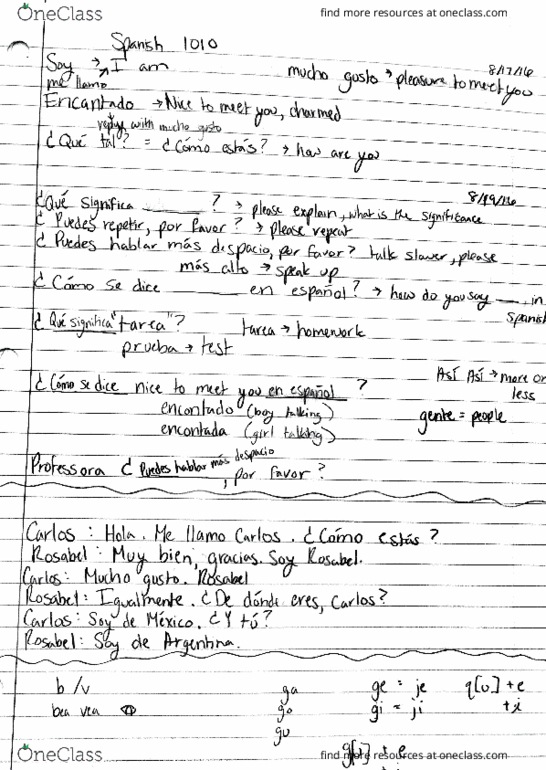 OneClass find more resources at oneclass.com
Spanish 1010
8/17/16
Soy → I am
mucho gusto → pleasure to meet you
me llamo
Encantado → Nice to meet you, charmed
reply with mucho gusto
¿Qué tal? = ¿Cómo estás? → how are you
8/19/16
¿Qué significa ______ ? → please explain, what is the significance
¿ Puedes repetir, por favor ? → please repeat
¿ Puedes hablar más despacio, por favor? talk slower, please
más alto → speak up
¿ Cómo se dice ______ en español? → how do you say __ in
Spanish
¿ Qué significa "tarea"? tarea → homework
prueba → test
Así Así → more or
less
¿ Cómo se dice nice to meet you en español ?
encontado (boy talking) gente = people
encontada (girl talking)
Professora ¿ Puedes hablar más despacio, por favor ?
Carlos : Hola. Me llamo Carlos. ¿Cómo estás ?
Rosabel : Muy bien, gracias. Soy Rosabel.
Carlos: Mucho gusto. Rosabel
Rosabel: Igualmente. ¿De dónde eres, Carlos?
Carlos: Soy de México. ¿Y tú?
Rosabel: Soy de Argentina.
b /v ga ge = je q[u] + e
bea vea go gi = ji + i
gu
g[u] + e
OneClass find more resources at oneclass.com